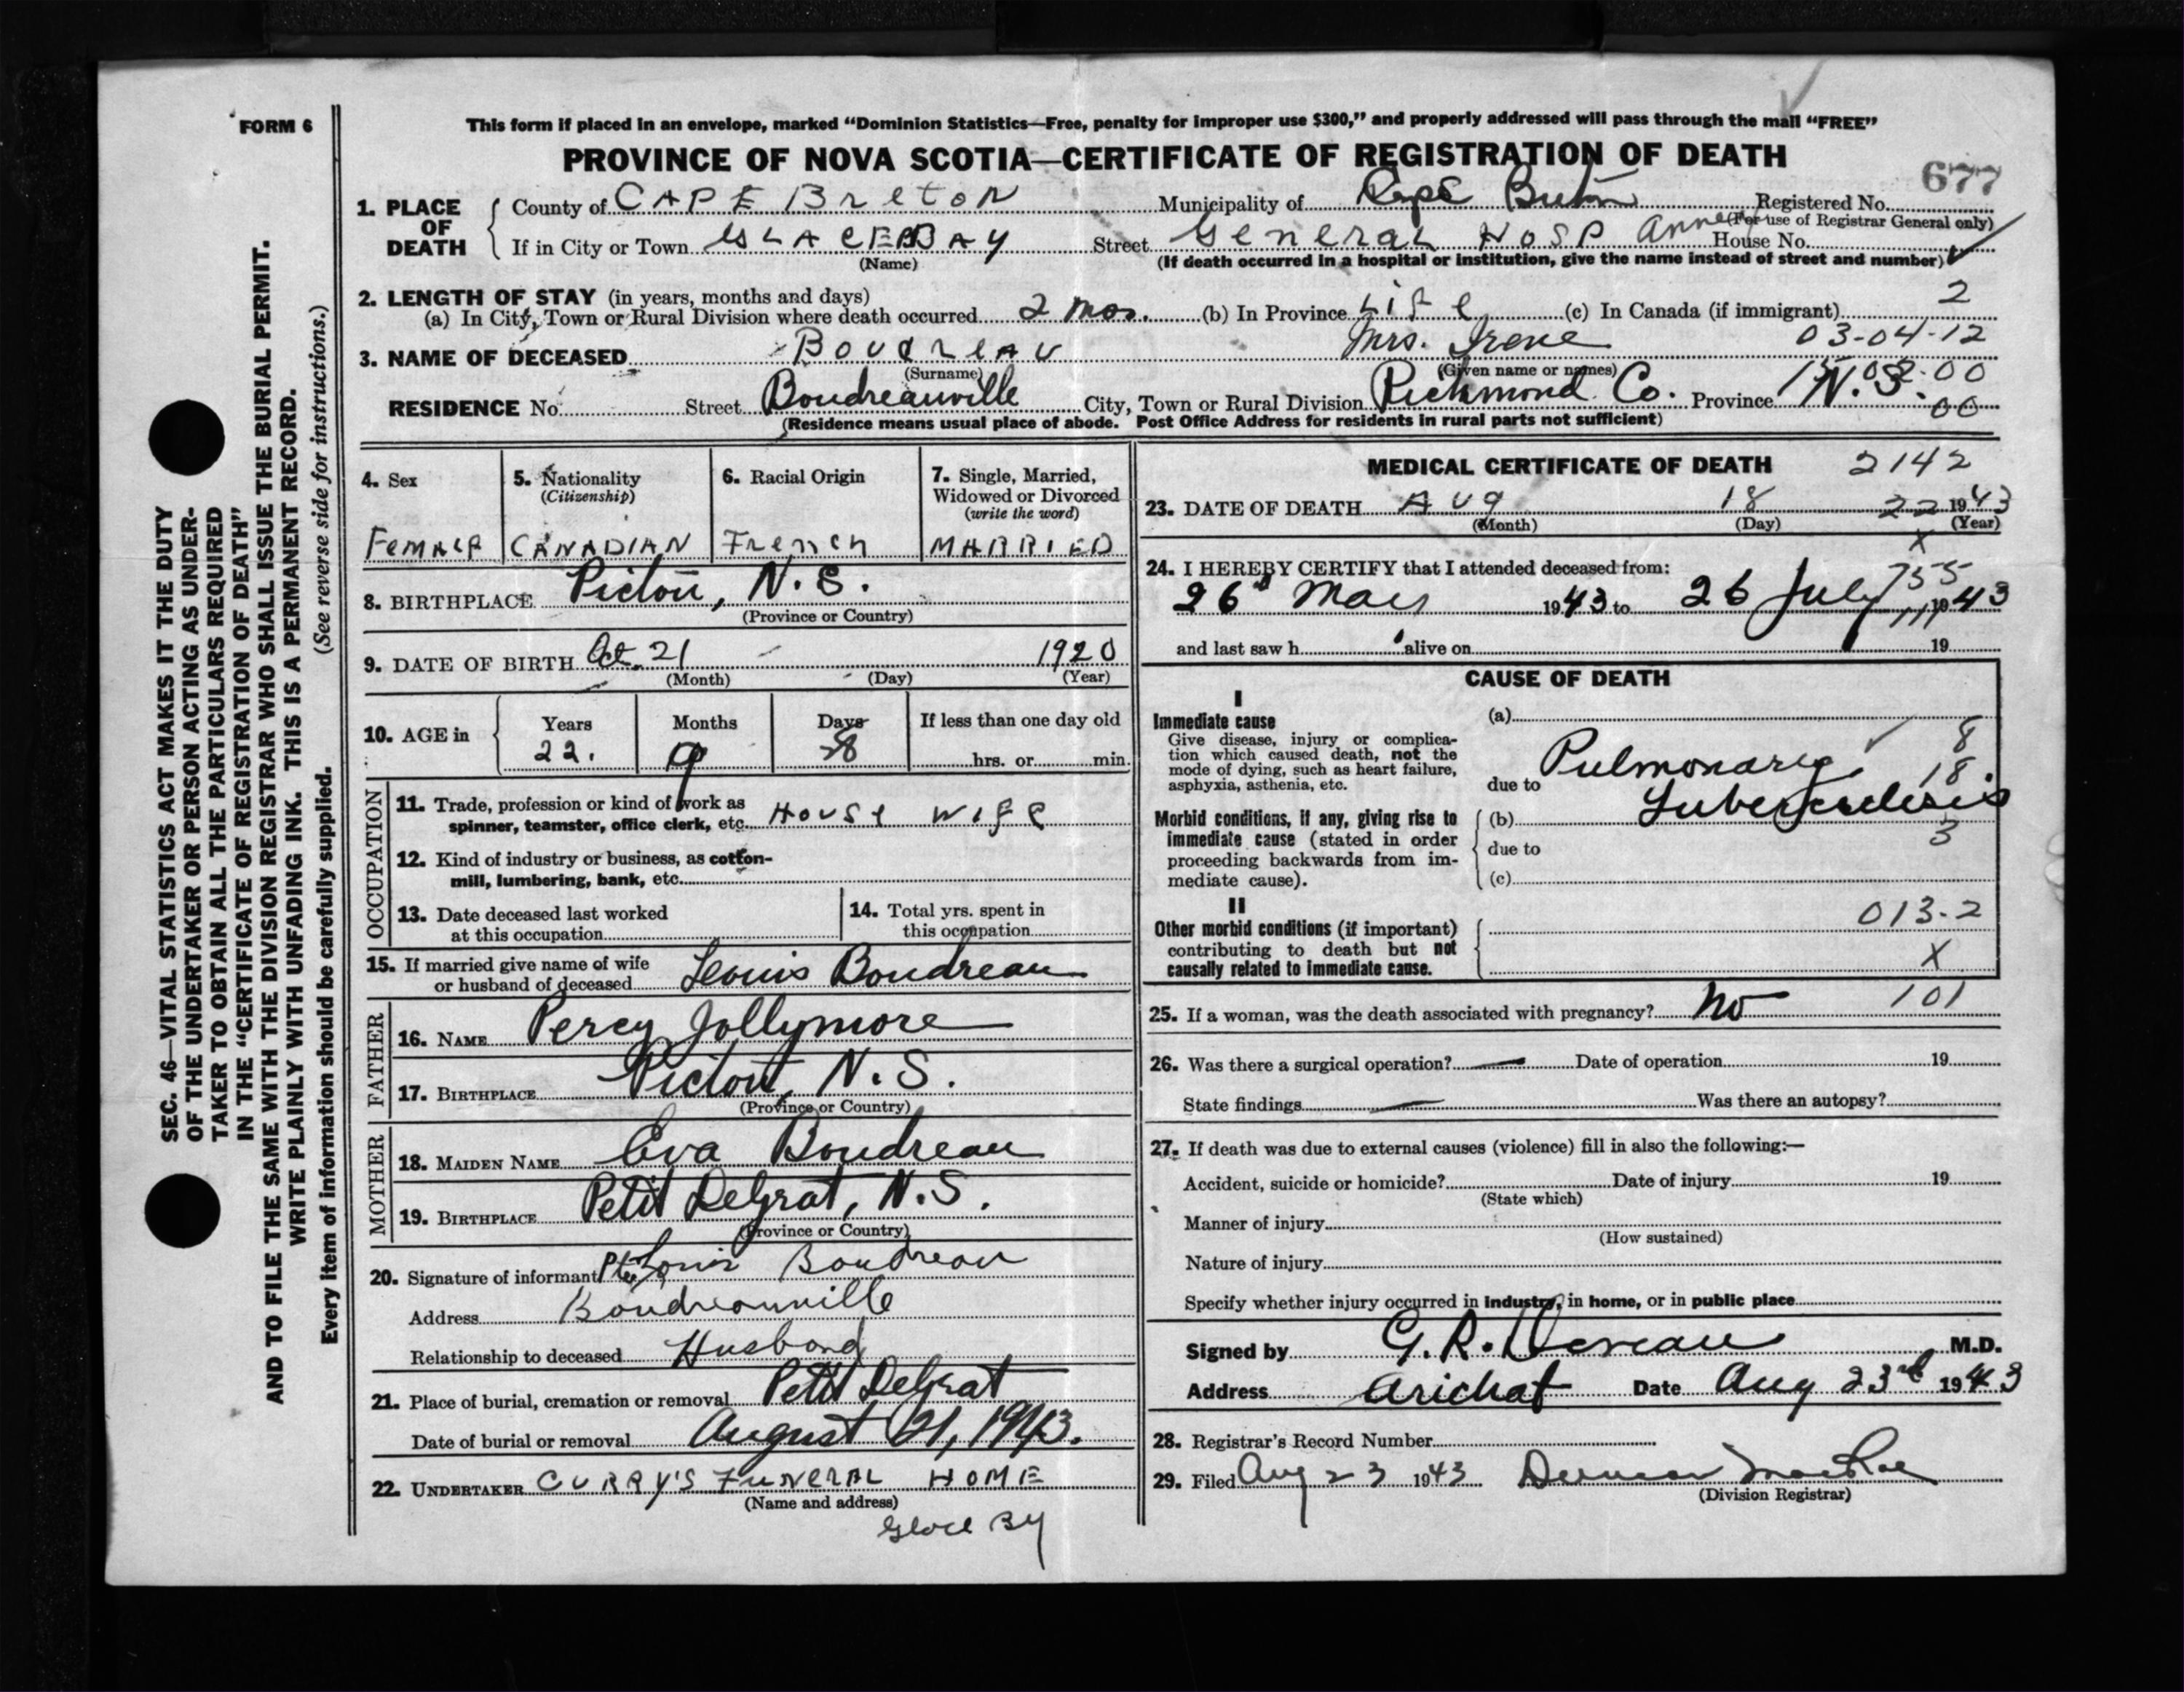 FORM 6
This form if placed in an envelope, marked "Dominion Statistics—Free, penalty for improper use $300," and properly addressed will pass through the mail "FREE"
PROVINCE OF NOVA SCOTIA—CERTIFICATE OF REGISTRATION OF DEATH
677
1. PLACE OF DEATH
County of CAPE BretoN Municipality of Cape Breton Registered No.
(For use of Registrar General only)
If in City or Town GLACE BAY Street General Hosp Annex House No.
(Name) (If death occurred in a hospital or institution, give the name instead of street and number)
2. LENGTH OF STAY (in years, months and days) 2
(a) In City, Town or Rural Division where death occurred 2 mos. (b) In Province Life (c) In Canada (if immigrant)
3. NAME OF DECEASED Boudreau Mrs. Irene 03-04-12
(Surname) (Given name or names) 15-02-00
RESIDENCE No. Street Boudreauville City, Town or Rural Division Richmond Co. Province N.S. 00
(Residence means usual place of abode. Post Office Address for residents in rural parts not sufficient)
4. Sex
Female
5. Nationality
(Citizenship)
CANADIAN
6. Racial Origin
French
7. Single, Married,
Widowed or Divorced
(write the word)
MARRIED
8. BIRTHPLACE Pictou, N.S.
(Province or Country)
9. DATE OF BIRTH Oct. 21 1920
(Month) (Day) (Year)
10. AGE in Years Months Days If less than one day old
22. 9 28 hrs. or min.
OCCUPATION
11. Trade, profession or kind of work as
spinner, teamster, office clerk, etc. House wife
12. Kind of industry or business, as cotton-
mill, lumbering, bank, etc.
13. Date deceased last worked
at this occupation
14. Total yrs. spent in
this occupation
15. If married give name of wife
or husband of deceased Louis Boudreau
FATHER
16. NAME Percy Jollymore
17. BIRTHPLACE Pictou, N.S.
(Province or Country)
MOTHER
18. MAIDEN NAME Eva Boudreau
19. BIRTHPLACE Petit DeGrat, N.S.
(Province or Country)
20. Signature of informant Pte Louis Boudreau
Address Boudreauville
Relationship to deceased Husband
21. Place of burial, cremation or removal Petit DeGrat
Date of burial or removal August 21, 1943.
22. UNDERTAKER CURRY'S FUNERAL HOME
(Name and address)
Glace By
MEDICAL CERTIFICATE OF DEATH 2142
23. DATE OF DEATH Aug 18 22 1943
(Month) (Day) (Year)
x
24. I HEREBY CERTIFY that I attended deceased from: 755
26th May 1943 to 26 July 1943
and last saw h alive on 19
CAUSE OF DEATH
I
Immediate cause
Give disease, injury or complica-
tion which caused death, not the
mode of dying, such as heart failure,
asphyxia, asthenia, etc.
(a)
8
due to Pulmonary 18.
Morbid conditions, if any, giving rise to
immediate cause (stated in order
proceeding backwards from im-
mediate cause).
(b) Tuberculosis
3
due to
(c)
II
Other morbid conditions (if important)
contributing to death but not
causally related to immediate cause.
013-2
X
25. If a woman, was the death associated with pregnancy? No 101
26. Was there a surgical operation? — Date of operation 19
State findings — Was there an autopsy?
27. If death was due to external causes (violence) fill in also the following:—
Accident, suicide or homicide? Date of injury 19
(State which)
Manner of injury
(How sustained)
Nature of injury
Specify whether injury occurred in industry, in home, or in public place
Signed by G.R. Deveau M.D.
Address Arichat Date Aug 23rd 1943
28. Registrar's Record Number
29. Filed Aug 23 1943
(Division Registrar)
SEC. 46—VITAL STATISTICS ACT MAKES IT THE DUTY
OF THE UNDERTAKER OR PERSON ACTING AS UNDER-
TAKER TO OBTAIN ALL THE PARTICULARS REQUIRED
IN THE "CERTIFICATE OF REGISTRATION OF DEATH"
AND TO FILE THE SAME WITH THE DIVISION REGISTRAR WHO SHALL ISSUE THE BURIAL PERMIT.
WRITE PLAINLY WITH UNFADING INK. THIS IS A PERMANENT RECORD.
Every item of information should be carefully supplied. (See reverse side for instructions.)